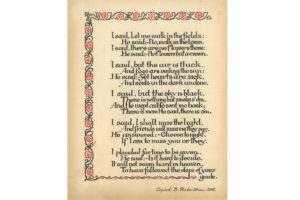 I said, Let me walk in the fields;
He said, No, walk in the town.
I said, there are no flowers there;
He said, No flowers but a crown.
I said, but the air is thick,
And fogs are veiling the sun;
He said, Yet hearts are sick,
And souls in the dark undone.
I said, but the sky is black,
There is nothing but smoke & din,
And He wept as He sent me back;
There is more He said, there is sin.
I said, I shall miss the light,
And friends will miss me they say,
He answered:- Choose to-night
If I am to miss you or they.
I pleaded for time to be given,
He said:- Is it hard to decide,
It will not seem hard in heaven,
To have followed the steps of your
guide.